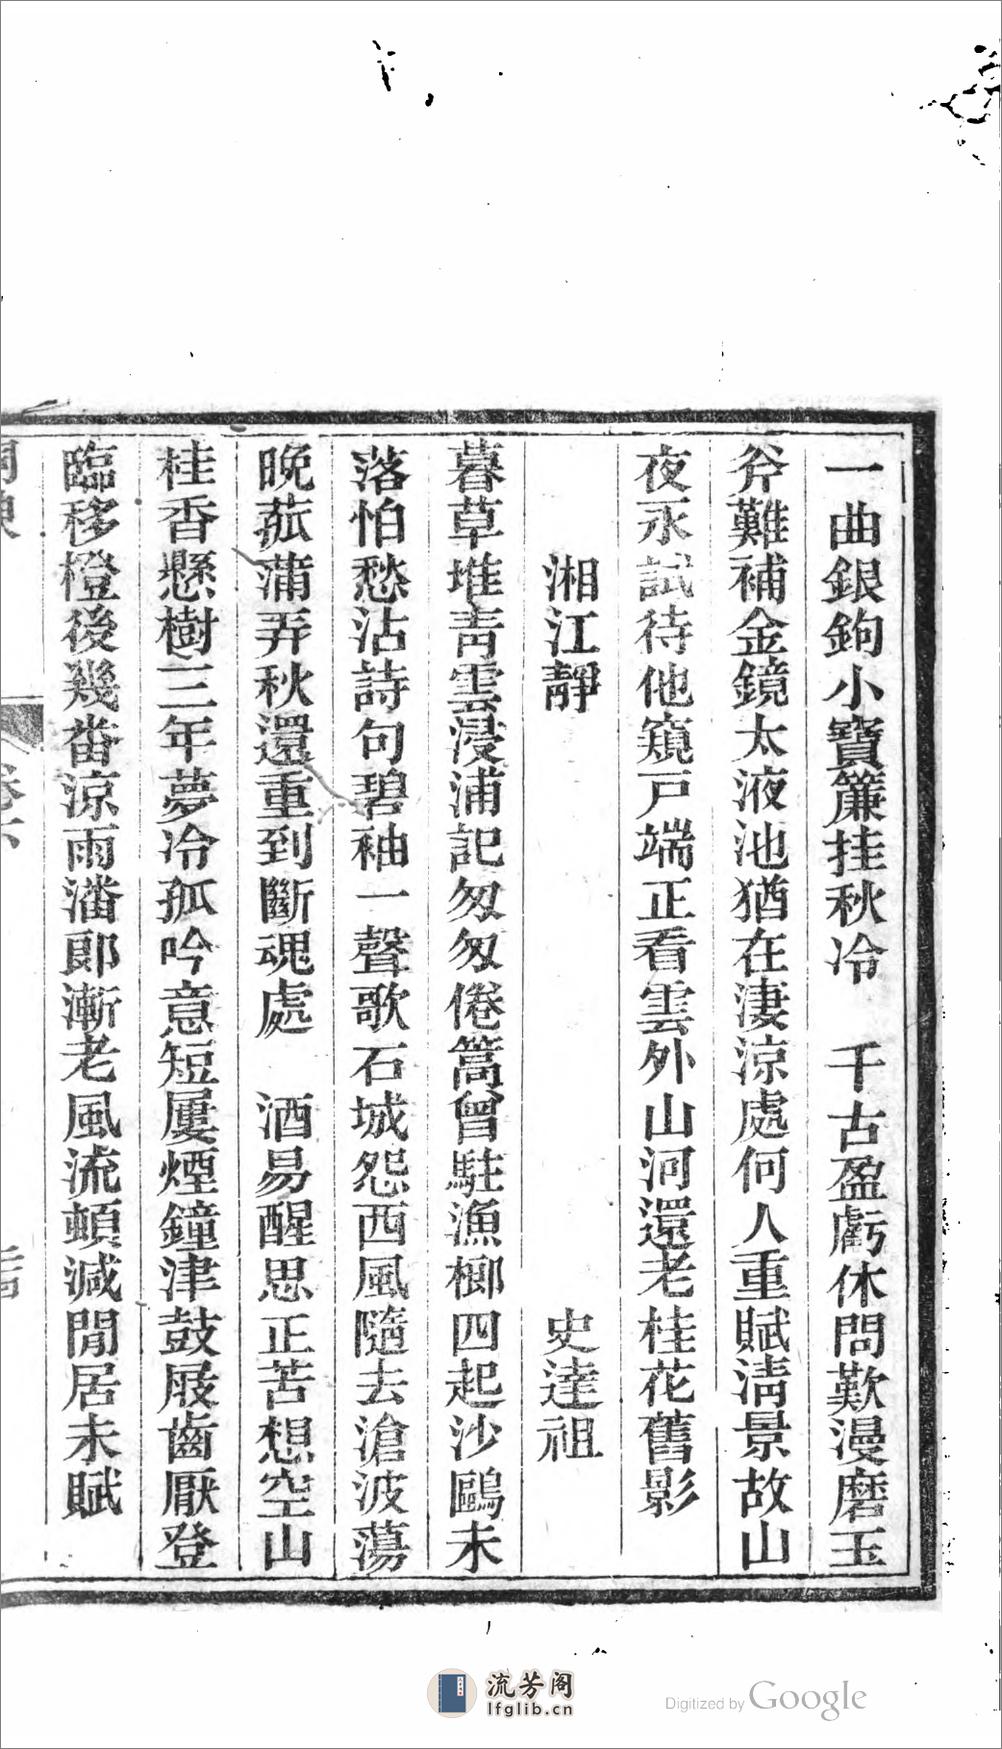 一曲銀鉤小寶簾挂秋冷　千古盈虧休問歎漫磨玉
斧難補金鏡太液池猶在淒涼處何人重賦淸景故山
夜永試待他窺戸端正看雲外山河還老桂花舊影
湘江靜　史達祖
暮草堆靑雲浸浦記匆匆倦篙曾駐漁榔四起沙鷗未
落怕愁沾詩句碧袖一聲歌石城怨西風隨去滄波蕩
晚菰蒲弄秋還重到斷魂處　酒易醒思正苦想空山
桂香懸樹三年夢冷孤吟意短屢煙鐘津鼓屐齒厭登
臨移橙後幾番涼雨潘郞漸老風流頓減閒居未賦
卷六
流芳阁
lfglib.cn
Digitized by Google